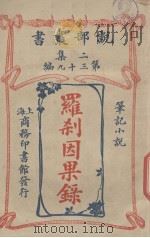 說部叢書
二集
第三十九編
筆記小說
羅剎因果錄
上海
商務印書館發行